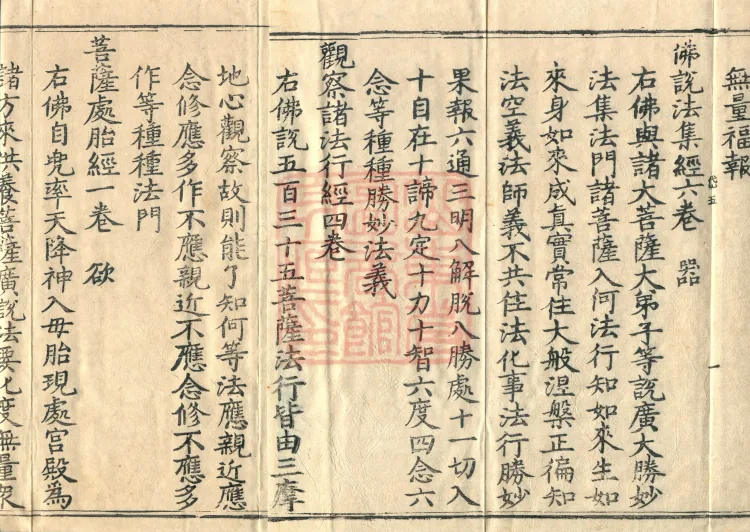 無量福報
佛說法集經六卷 器
右佛與諸大菩薩大弟子等說廣大勝妙
法集法門諸菩薩入何法行知如來生如
來身如來成真實常住大般涅槃正徧知
法空義法師義不共住法化事法行勝妙
果報六通三明八解脫八勝處十一切入
十自在十諦九定十力十智六度四念六
念等種種勝妙法義
觀察諸法行經四卷
右佛說五百三十五菩薩法行皆由三摩
地心觀察故則能了知何等法應親近應
念修應多作不應親近不應念修不應多
作等種種法門
菩薩處胎經一卷 欲
右佛自兜率天降神入母胎現處宮殿為
諸方來供養菩薩廣說法要化度無量眾